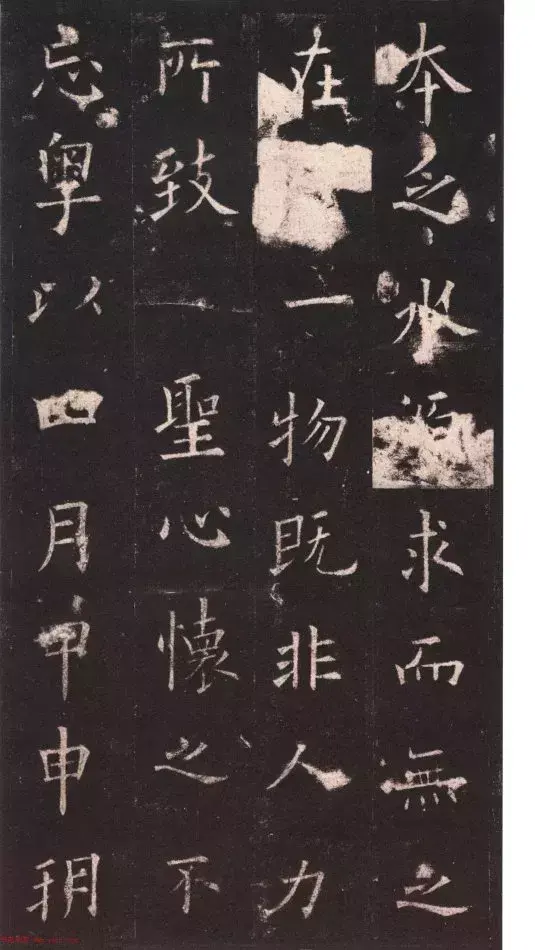 夲乏水求而無之
在一物既非人力
所致聖心懷之不
忘粤以四月甲申朔